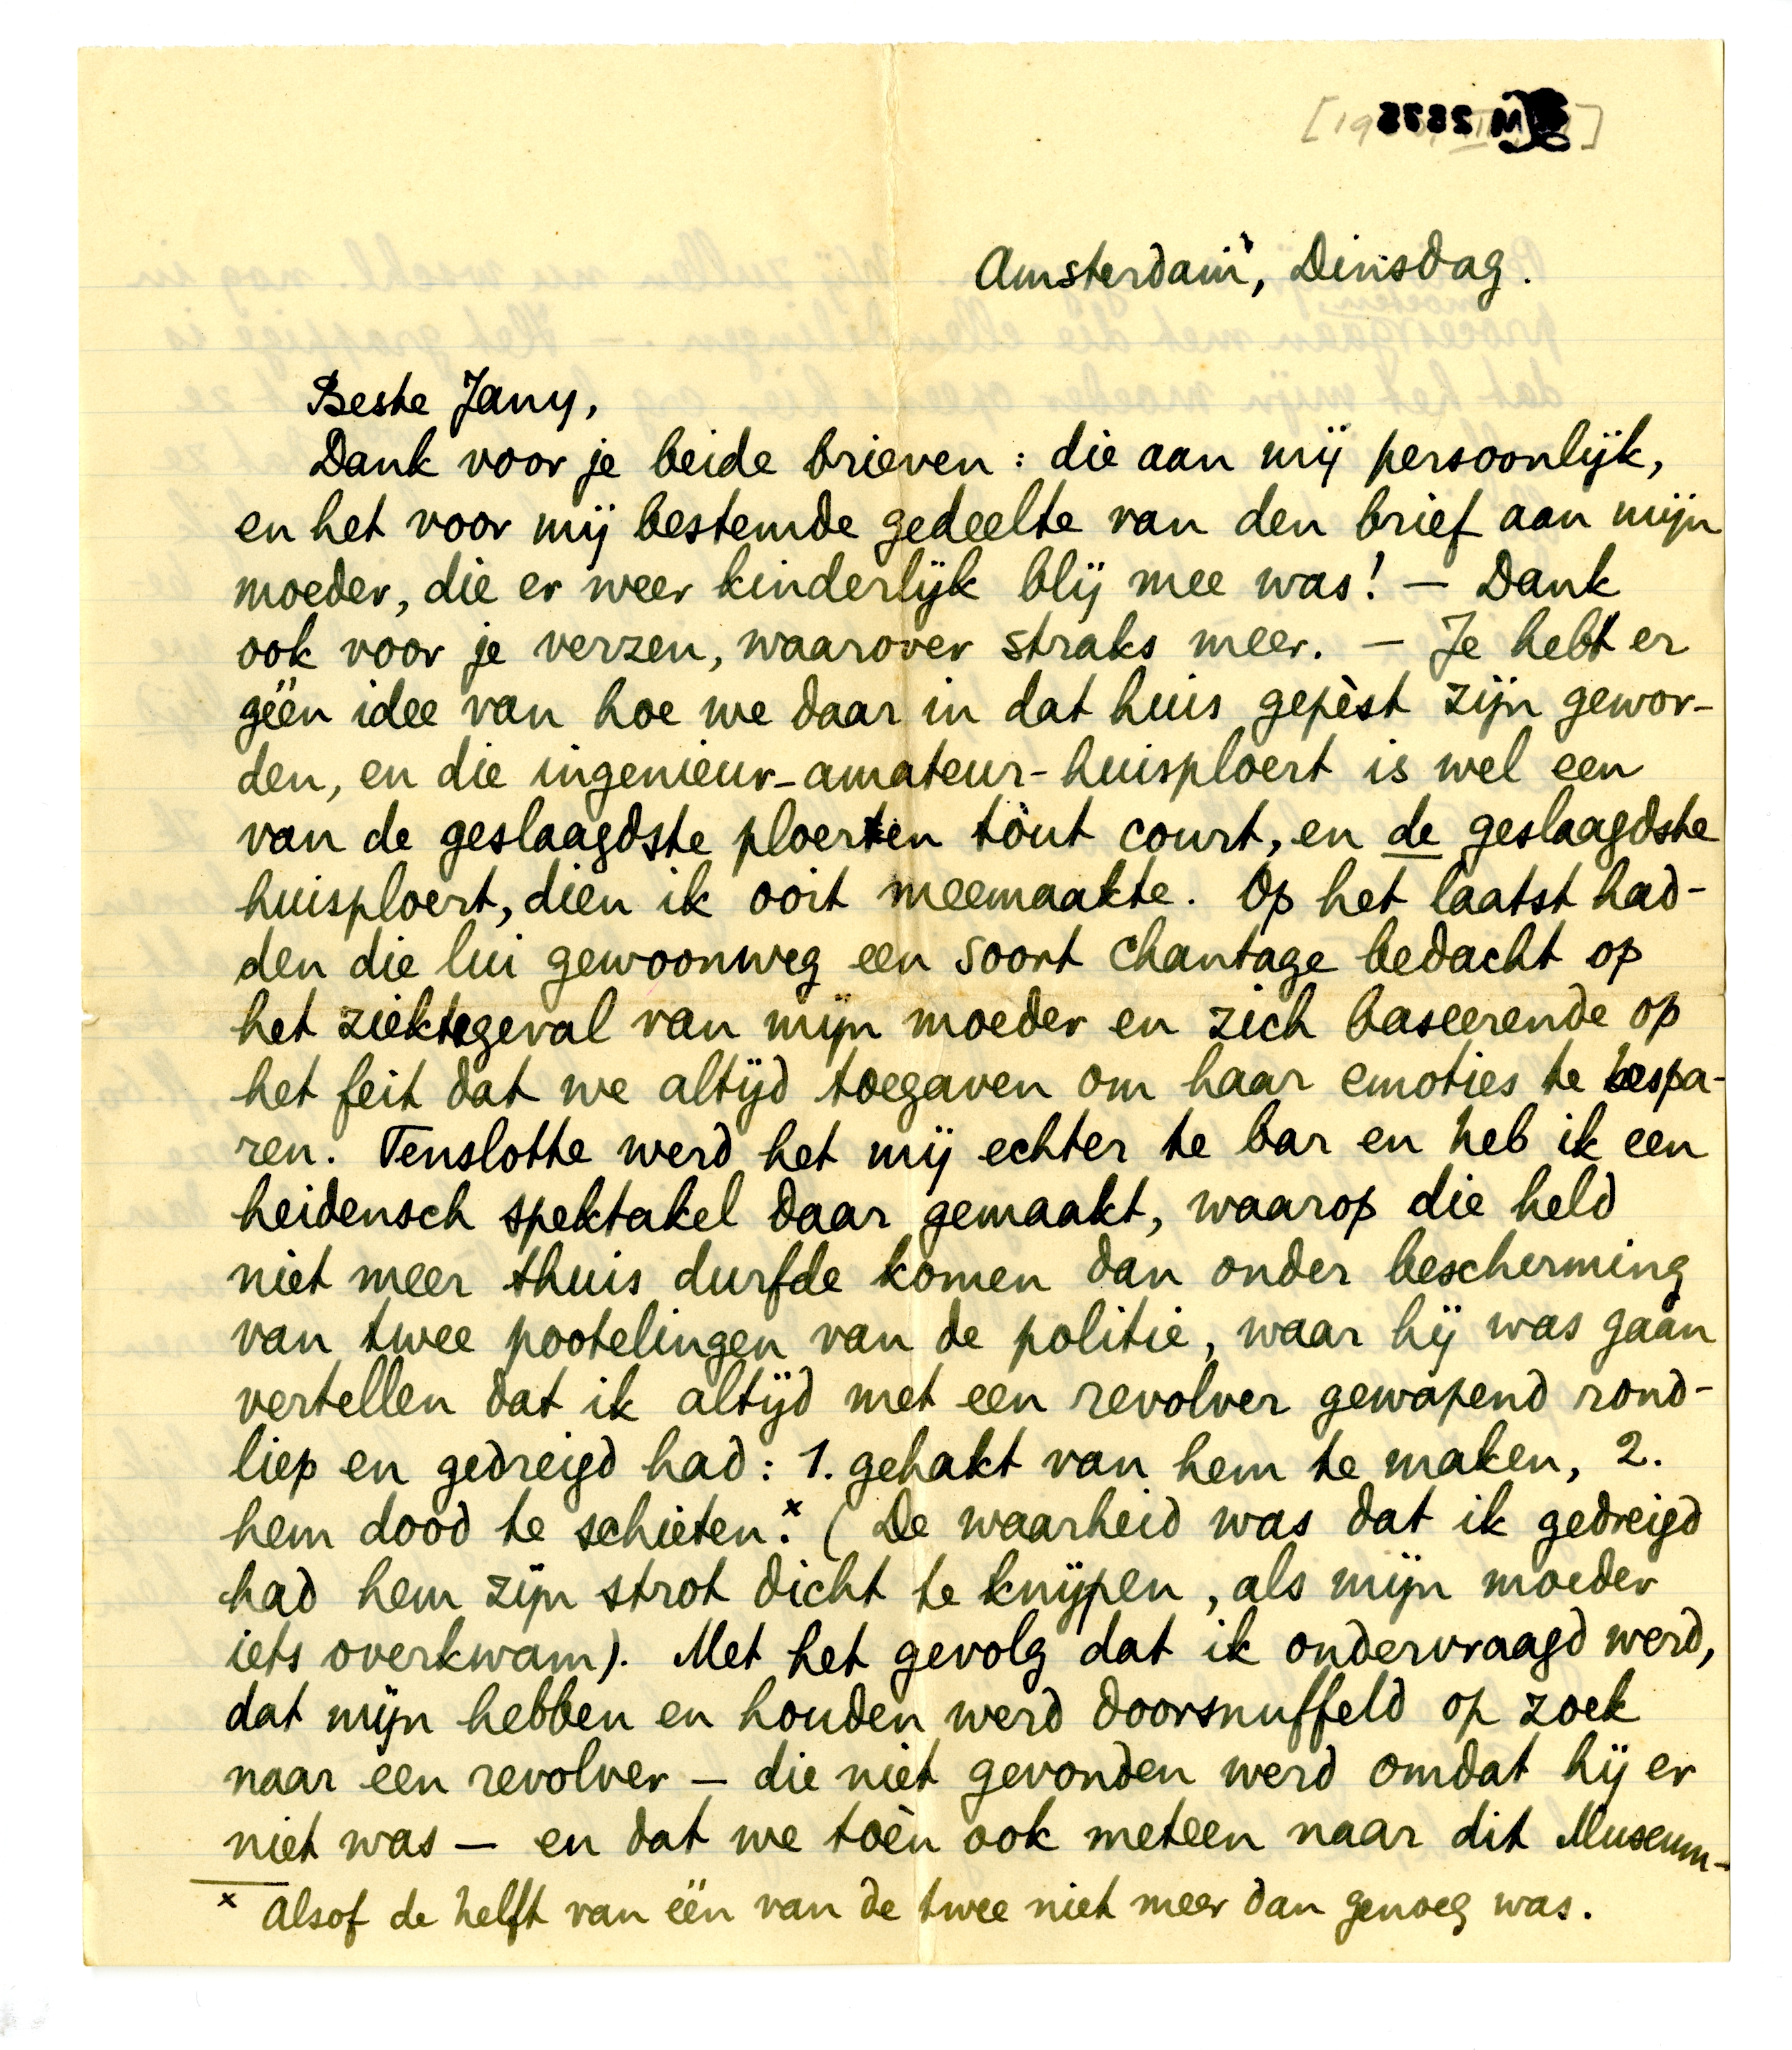 Amsterdam, Dinsdag.
Beste Jany,
Dank voor je beide brieven: die aan mij persoonlijk,
en het voor mij bestemde gedeelte van den brief aan mijn
moeder, die er weer kinderlijk blij mee was! — Dank
ook voor je verzen, waarover straks meer. — Je hebt er
géén idee van hoe we daar in dat huis gepèst zijn gewor-
den, en die ingenieur-amateur-huisploert is wel een
van de geslaagdste ploerten tout court, en de geslaagdste
huisploert, dien ik ooit meemaakte. Op het laatst had-
den die lui gewoonweg een soort chantage bedacht op
het ziektegeval van mijn moeder en zich baseerende op
het feit dat we altijd toegaven om haar emoties te bespa-
ren. Tenslotte werd het mij echter te bar en heb ik een
heidensch spektakel daar gemaakt, waarop die held
niet meer thuis durfde komen dan onder bescherming
van twee pootelingen van de politie, waar hij was gaan
vertellen dat ik altijd met een revolver gewapend rond-
liep en gedreigd had: 1. gehakt van hem te maken, 2.
hem dood te schieten.x (De waarheid was dat ik gedreigd
had hem zijn strot dicht te knijpen, als mijn moeder
iets overkwam). Met het gevolg dat ik ondervraagd werd,
dat mijn hebben en houden werd doorsnuffeld op zoek
naar een revolver — die niet gevonden werd omdat hij er
niet was — en dat we toèn ook meteen naar dit Museum-
x Alsof de helft van één van de twee niet meer dan genoeg was.